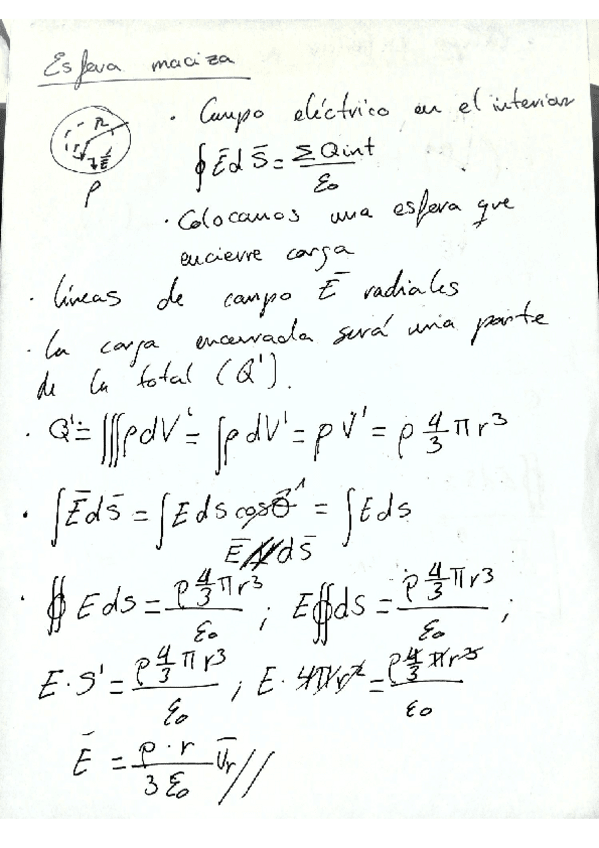 Esfera maciza
R
r
Ē
ρ
· Campo eléctrico en el interior
∮ Ē d S̄ = ΣQint / ε₀
· Colocamos una esfera que
encierre carga
· líneas de campo Ē radiales
· la carga encerrada será una parte
de la total (Q').
· Q' = ∭ρdV' = ∫ρdV' = ρV' = ρ 4/3 πr³
· ∫Ēds̄ = ∫Eds cosθ¹ = ∫Eds
Ē // ds̄
· ∯ Eds = ρ 4/3 πr³ / ε₀ ; E∯ds = ρ 4/3 πr³ / ε₀ ;
E·S' = ρ 4/3 πr³ / ε₀ ; E· 4πr² = ρ 4/3 πr³ / ε₀
Ē = ρ·r / 3ε₀ Ūr //